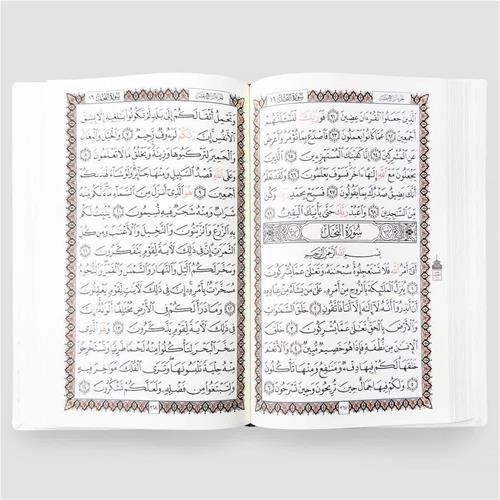 الجزء الرابع عشر
سورة النحل ١٦
الَّذِينَ جَعَلُوا الْقُرْءَانَ عِضِينَ ٩١ فَوَرَبِّكَ لَنَسْـَٔلَنَّهُمْ
أَجْمَعِينَ ٩٢ عَمَّا كَانُوا يَعْمَلُونَ ٩٣ فَاصْدَعْ بِمَا تُؤْمَرُ وَأَعْرِضْ
عَنِ الْمُشْرِكِينَ ٩٤ إِنَّا كَفَيْنَٰكَ الْمُسْتَهْزِءِينَ ٩٥ الَّذِينَ يَجْعَلُونَ
مَعَ اللَّهِ إِلَٰهًا ءَاخَرَ فَسَوْفَ يَعْلَمُونَ ٩٦ وَلَقَدْ نَعْلَمُ أَنَّكَ
يَضِيقُ صَدْرُكَ بِمَا يَقُولُونَ ٩٧ فَسَبِّحْ بِحَمْدِ رَبِّكَ وَكُن
مِّنَ السَّٰجِدِينَ ٩٨ وَاعْبُدْ رَبَّكَ حَتَّىٰ يَأْتِيَكَ الْيَقِينُ ٩٩
سُورَةُ النَّحْلِ
بِسْمِ اللَّهِ الرَّحْمَٰنِ الرَّحِيمِ
أَتَىٰ أَمْرُ اللَّهِ فَلَا تَسْتَعْجِلُوهُ سُبْحَٰنَهُ وَتَعَٰلَىٰ عَمَّا يُشْرِكُونَ
١ يُنَزِّلُ الْمَلَٰٓئِكَةَ بِالرُّوحِ مِنْ أَمْرِهِ عَلَىٰ مَن يَشَآءُ مِنْ عِبَادِهِ
أَنْ أَنذِرُوا أَنَّهُ لَآ إِلَٰهَ إِلَّآ أَنَا فَاتَّقُونِ ٢ خَلَقَ السَّمَٰوَٰتِ
وَالْأَرْضَ بِالْحَقِّ تَعَٰلَىٰ عَمَّا يُشْرِكُونَ ٣ خَلَقَ
الْإِنسَٰنَ مِن نُّطْفَةٍ فَإِذَا هُوَ خَصِيمٌ مُّبِينٌ ٤ وَالْأَنْعَٰمَ
خَلَقَهَا لَكُمْ فِيهَا دِفْءٌ وَمَنَٰفِعُ وَمِنْهَا تَأْكُلُونَ
٥ وَلَكُمْ فِيهَا جَمَالٌ حِينَ تُرِيحُونَ وَحِينَ تَسْرَحُونَ ٦
٢٦٧
الجزء الرابع عشر
سورة النحل ١٦
وَتَحْمِلُ أَثْقَالَكُمْ إِلَىٰ بَلَدٍ لَّمْ تَكُونُوا بَٰلِغِيهِ إِلَّا بِشِقِّ
الْأَنفُسِ إِنَّ رَبَّكُمْ لَرَءُوفٌ رَّحِيمٌ ٧ وَالْخَيْلَ وَالْبِغَالَ
وَالْحَمِيرَ لِتَرْكَبُوهَا وَزِينَةً وَيَخْلُقُ مَا لَا تَعْلَمُونَ ٨
وَعَلَى اللَّهِ قَصْدُ السَّبِيلِ وَمِنْهَا جَآئِرٌ وَلَوْ شَآءَ لَهَدَىٰكُمْ
أَجْمَعِينَ ٩ هُوَ الَّذِي أَنزَلَ مِنَ السَّمَآءِ مَآءً لَّكُم مِّنْهُ
شَرَابٌ وَمِنْهُ شَجَرٌ فِيهِ تُسِيمُونَ ١٠ يُنبِتُ لَكُم
بِهِ الزَّرْعَ وَالزَّيْتُونَ وَالنَّخِيلَ وَالْأَعْنَٰبَ وَمِن كُلِّ
الثَّمَرَٰتِ إِنَّ فِي ذَٰلِكَ لَءَايَةً لِّقَوْمٍ يَتَفَكَّرُونَ ١١
وَسَخَّرَ لَكُمُ الَّيْلَ وَالنَّهَارَ وَالشَّمْسَ وَالْقَمَرَ وَالنُّجُومُ
مُسَخَّرَٰتٌ بِأَمْرِهِ إِنَّ فِي ذَٰلِكَ لَءَايَٰتٍ لِّقَوْمٍ يَعْقِلُونَ
١٢ وَمَا ذَرَأَ لَكُمْ فِي الْأَرْضِ مُخْتَلِفًا أَلْوَٰنُهُ إِنَّ
فِي ذَٰلِكَ لَءَايَةً لِّقَوْمٍ يَذَّكَّرُونَ ١٣ وَهُوَ الَّذِي
سَخَّرَ الْبَحْرَ لِتَأْكُلُوا مِنْهُ لَحْمًا طَرِيًّا وَتَسْتَخْرِجُوا
مِنْهُ حِلْيَةً تَلْبَسُونَهَا وَتَرَى الْفُلْكَ مَوَاخِرَ فِيهِ
وَلِتَبْتَغُوا مِن فَضْلِهِ وَلَعَلَّكُمْ تَشْكُرُونَ ١٤
٢٦٨